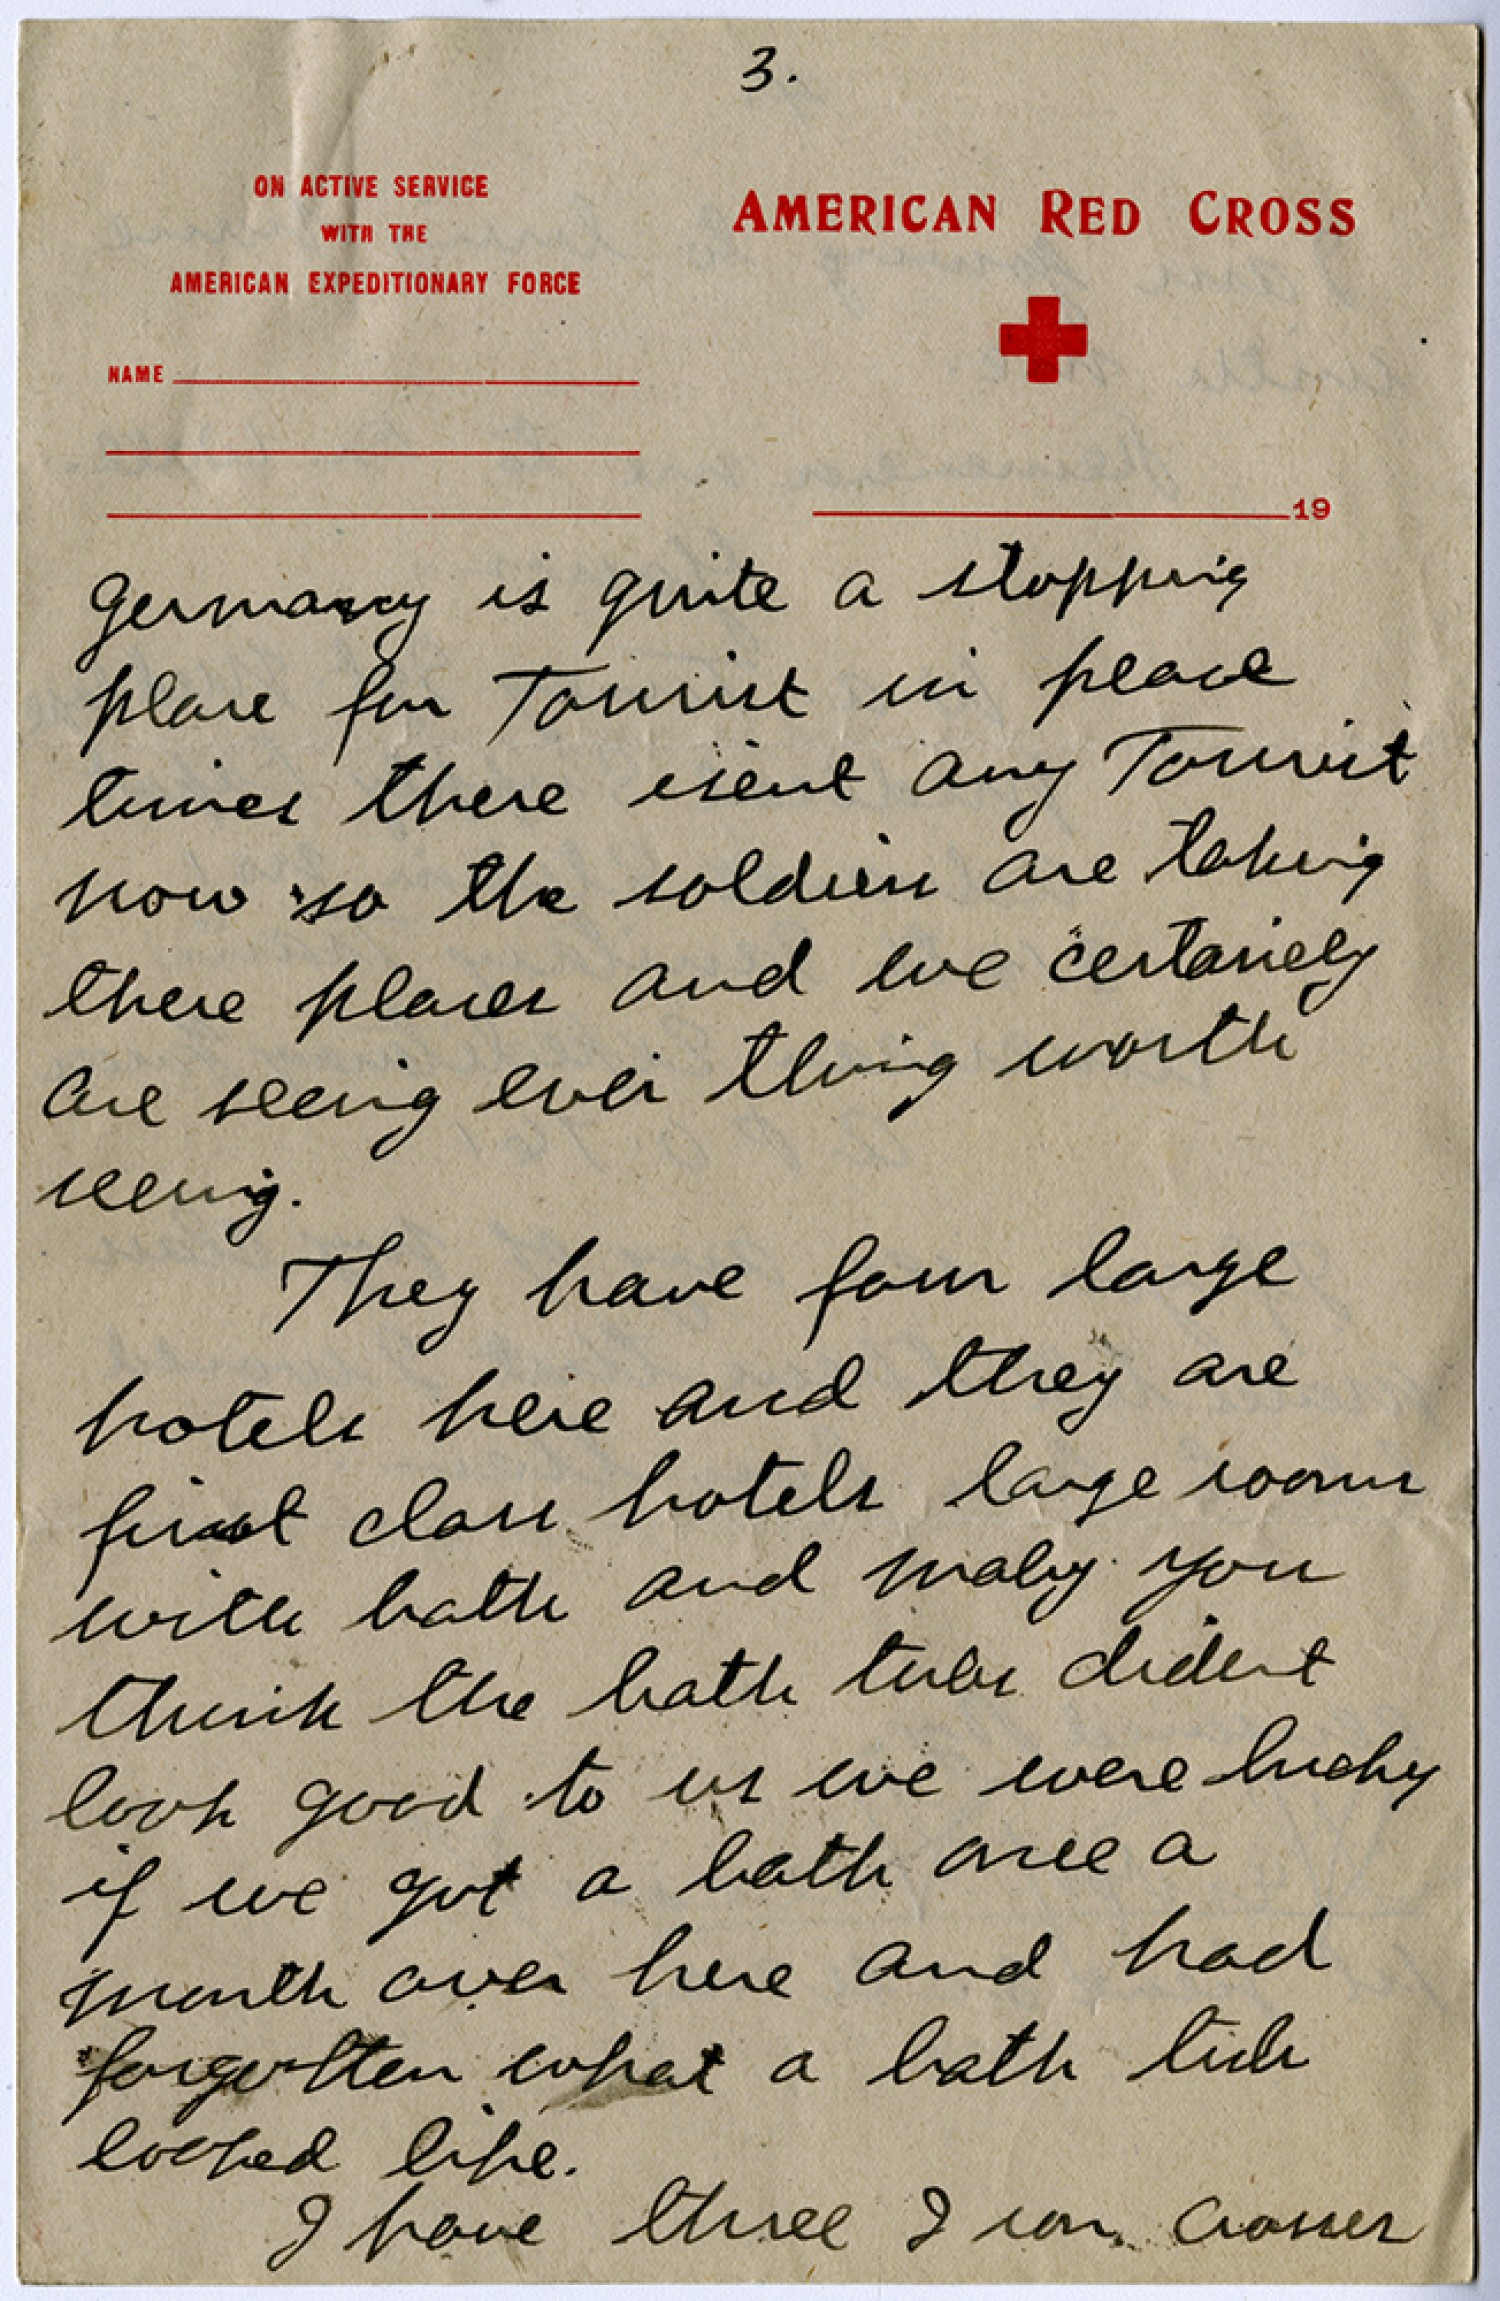 3.
ON ACTIVE SERVICE
WITH THE
AMERICAN EXPEDITIONARY FORCE
AMERICAN RED CROSS
NAME
19
Germany is quite a stopping
place for Tourist in peace
times there isent any Tourist
now so the soldiers are taking
there places and we certainely
are seeing ever thing worth
seeing.
They have four large
hotels here and they are
first class hotels large rooms
with bath and maby you
think the bath tubs dident
look good to us we were lucky
if we got a bath once a
month over here and had
forgotten what a bath tub
looked like.
I have three Iron Crosses